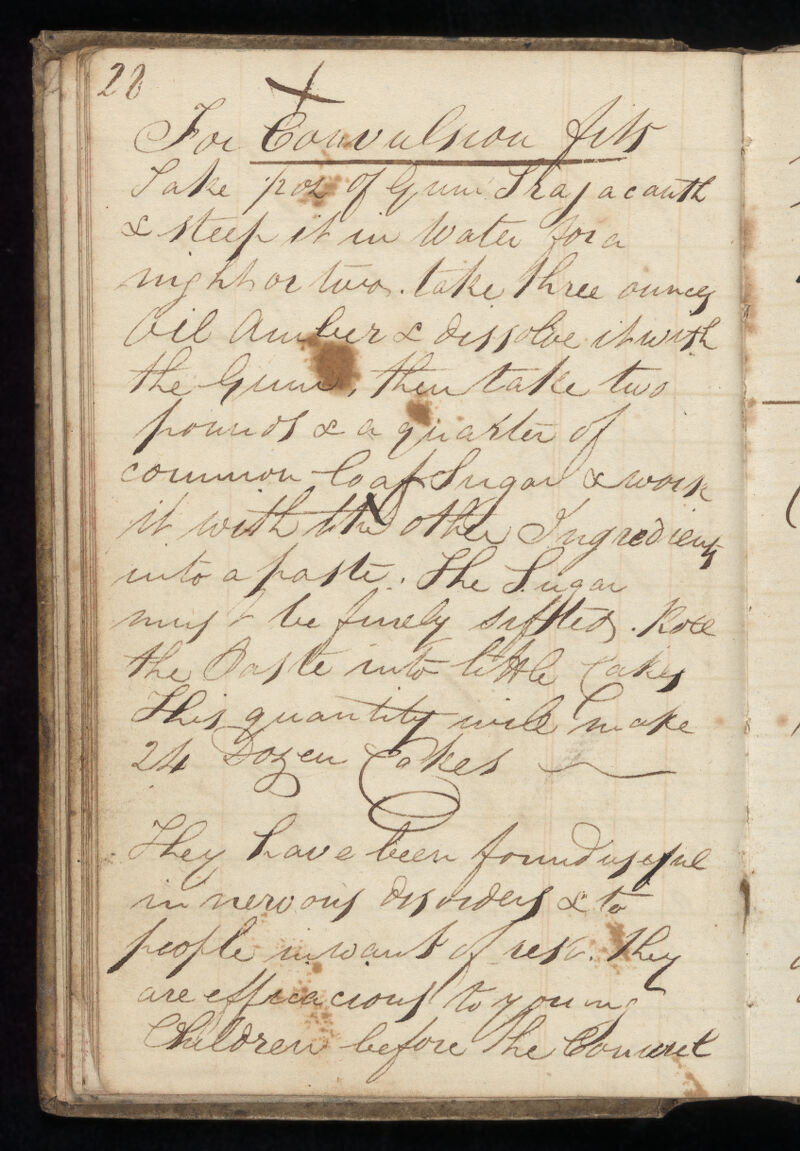 28
For Convulsion fits
Take of Gum Tragacanth
& steep it in Water for a
night or two. take three ounces
Oil Amber & dissolve it with
the Gum, then take two
pounds & a quarter of
common loaf Sugar & work
it with the other Ingredients
into a paste. The Sugar
must be finely sifted. Role
the Paste into little Cakes
This quantity will make
24 Dozen Cakes
They have been found useful
in nervous disorders & to
people in want of rest. they
are efficacious to young
Children before the